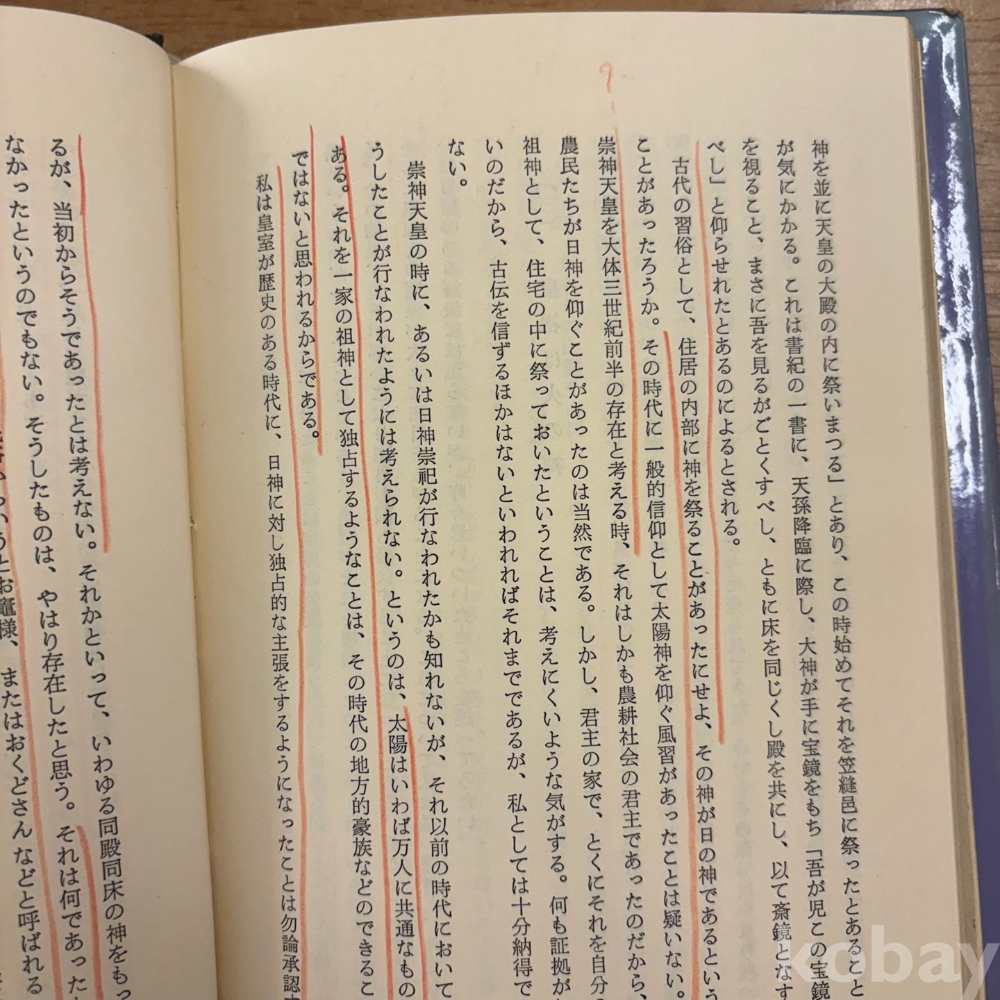 ?
神を並に天皇の大殿の内に祭いまつる」とあり、この時始めてそれを笠縫邑に祭ったとあること
が気にかかる。これは書紀の一書に、天孫降臨に際し、大神が手に宝鏡をもち「吾が児この宝鏡
を視ること、まさに吾を見るがごとくすべし、ともに床を同じくし殿を共にし、以て斎鏡となす
べし」と仰らせれたとあるのによるとされる。
古代の習俗として、住居の内部に神を祭ることがあったにせよ、その神が日の神であるという
ことがあったろうか。その時代に一般的信仰として太陽神を仰ぐ風習があったことは疑いない。
崇神天皇を大体三世紀前半の存在と考える時、それはしかも農耕社会の君主であったのだから、
農民たちが日神を仰ぐことがあったのは当然である。しかし、君主の家で、とくにそれを自分
祖神として、住宅の中に祭っておいたということは、考えにくいような気がする。何も証拠が
いのだから、古伝を信ずるほかはないといわれればそれまでであるが、私としては十分納得で
ない。
崇神天皇の時に、あるいは日神崇祀が行なわれたかも知れないが、それ以前の時代において
うしたことが行なわれたようには考えられない。というのは、太陽はいわば万人に共通なもの
ある。それを一家の祖神として独占するようなことは、その時代の地方的豪族などのできるこ
ではないと思われるからである。
私は皇室が歴史のある時代に、日神に対し独占的な主張をするようになったことは勿論承認
るが、当初からそうであったとは考えない。それかといって、いわゆる同殿同床の神をもっ
なかったというのでもない。そうしたものは、やはり存在したと思う。それは何であった
いうとお竈様、またはおくどさんなどと呼ばれる
kobay